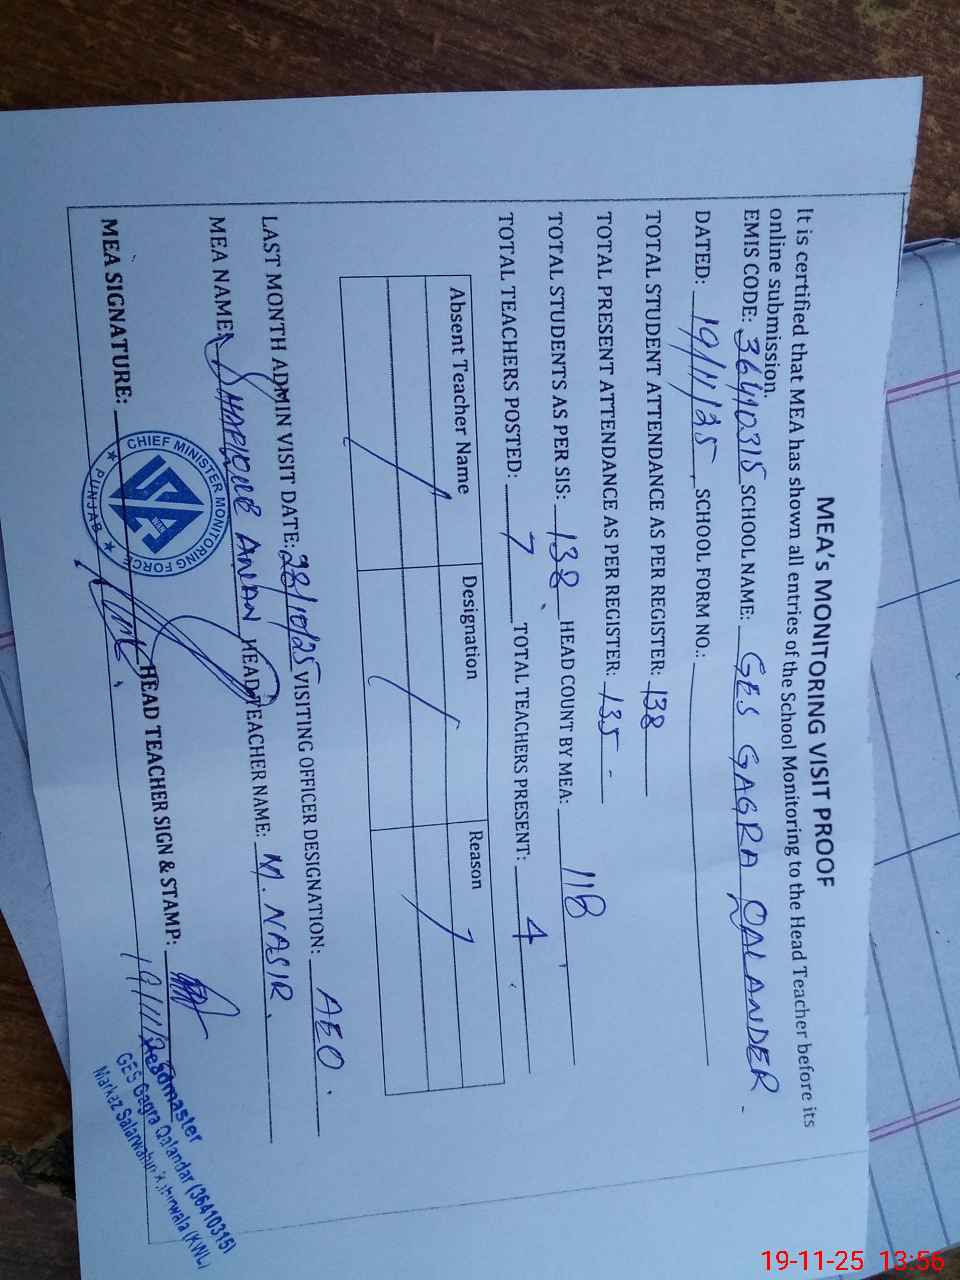 MEA'S MONITORING VISIT PROOF
It is certified that MEA has shown all entries of the School Monitoring to the Head Teacher before its
online submission.
EMIS CODE: 36410315 SCHOOL NAME: GES GAGRA QALANDER
DATED: 19/11/25, SCHOOL FORM NO.:
TOTAL STUDENT ATTENDANCE AS PER REGISTER: 138
TOTAL PRESENT ATTENDANCE AS PER REGISTER: 135
TOTAL STUDENTS AS PER SIS: 138 HEAD COUNT BY MEA: 118
TOTAL TEACHERS POSTED: 7 TOTAL TEACHERS PRESENT: 4
Absent Teacher Name Designation Reason
LAST MONTH ADMIN VISIT DATE: 28/10/25 VISITING OFFICER DESIGNATION: AEO.
MEA NAME: HEAD TEACHER NAME: M. NASIR.
MEA SIGNATURE: HEAD TEACHER SIGN & STAMP:
CHIEF MINISTER MONITORING FORCE
PUNJAB
19/11/25
Headmaster
GES Gagra Qalandar (36410315)
Markaz (KWL)
19-11-25 13:56